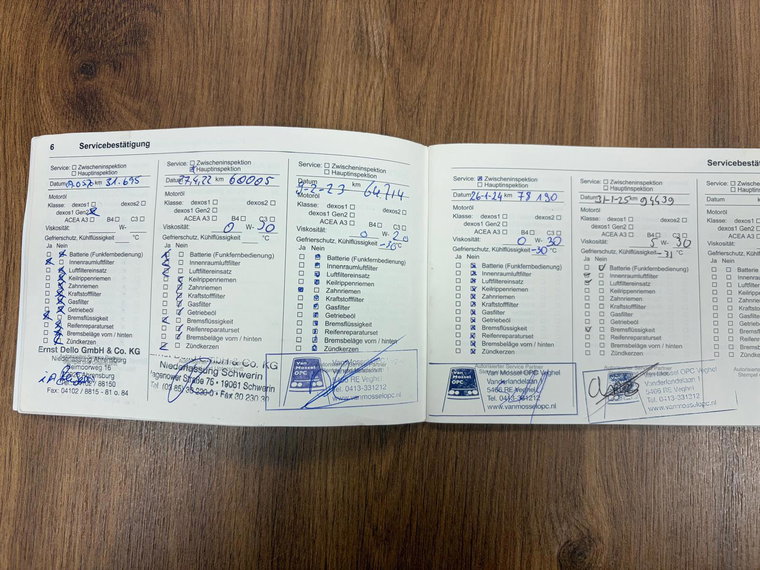 6 Servicebestätigung
Service: Zwischeninspektion
Hauptinspektion
Datum km 31.695
Motoröl
Klasse: dexos1 dexos2
dexos1 Gen2
ACEA A3 B4 C3
Viskosität: W-
Gefrierschutz, Kühlflüssigkeit °C
Ja Nein
Batterie (Funkfernbedienung)
Innenraumluftfilter
Luftfiltereinsatz
Keilrippenriemen
Zahnriemen
Kraftstofffilter
Gasfilter
Getriebeöl
Bremsflüssigkeit
Reifenreparaturset
Bremsbeläge vorn / hinten
Zündkerzen
Ernst Dello GmbH & Co. KG
Niederlassung Ahrensburg
Beimoorweg 16
Ahrensburg
86150
Fax: 04102 / 8815 - 81 o. 84
Service: Zwischeninspektion
Hauptinspektion
Datum 27.4.22 km 60005
Motoröl
Klasse: dexos1 dexos2
dexos1 Gen2
ACEA A3 B4 C3
Viskosität: 0 W- 30
Gefrierschutz, Kühlflüssigkeit °C
Ja Nein
Batterie (Funkfernbedienung)
Innenraumluftfilter
Luftfiltereinsatz
Keilrippenriemen
Zahnriemen
Kraftstofffilter
Gasfilter
Getriebeöl
Bremsflüssigkeit
Reifenreparaturset
Bremsbeläge vorn / hinten
Zündkerzen
GmbH & Co. KG
Niederlassung Schwerin
Straße 75 • 19061 Schwerin
Fax 30 230 30
Service: Zwischeninspektion
Hauptinspektion
Datum 9-2-23 km 64714
Motoröl
Klasse: dexos1 dexos2
dexos1 Gen2
ACEA A3 B4 C3
Viskosität: 0 W- 20
Gefrierschutz, Kühlflüssigkeit °C
Ja Nein
Batterie (Funkfernbedienung)
Innenraumluftfilter
Luftfiltereinsatz
Keilrippenriemen
Zahnriemen
Kraftstofffilter
Gasfilter
Getriebeöl
Bremsflüssigkeit
Reifenreparaturset
Bremsbeläge vorn / hinten
Zündkerzen
Van Mossel OPC
RE Veghel
Tel. 0413-331212
www.vanmosselopc.nl
Servicebestä
Service: Zwischeninspektion
Hauptinspektion
Datum 26-1-24 km 78 190
Motoröl
Klasse: dexos1 dexos2
dexos1 Gen2
ACEA A3 B4 C3
Viskosität: 0 W- 30
Gefrierschutz, Kühlflüssigkeit -30 °C
Ja Nein
Batterie (Funkfernbedienung)
Innenraumluftfilter
Luftfiltereinsatz
Keilrippenriemen
Zahnriemen
Kraftstofffilter
Gasfilter
Getriebeöl
Bremsflüssigkeit
Reifenreparaturset
Bremsbeläge vorn / hinten
Zündkerzen
Autorisierter Service Partner
Van Mossel OPC
Van Mossel OPC Veghel
Vanderlandelaan 1
5466 RE Veghel
Tel. 0413-331212
www.vanmosselopc.nl
Service: Zwischeninspektion
Hauptinspektion
Datum 31-1-25 km 94439
Motoröl
Klasse: dexos1 dexos2
dexos1 Gen2
ACEA A3 B4 C3
Viskosität: 5 W- 30
Gefrierschutz, Kühlflüssigkeit -31 °C
Ja Nein
Batterie (Funkfernbedienung)
Innenraumluftfilter
Luftfiltereinsatz
Keilrippenriemen
Zahnriemen
Kraftstofffilter
Gasfilter
Getriebeöl
Bremsflüssigkeit
Reifenreparaturset
Bremsbeläge vorn / hinten
Zündkerzen
Autorisierter Service Partner
Mossel OPC Veghel
Vanderlandelaan 1
5466 RE Veghel
Tel. 0413-331212
www.vanmosselopc.nl
Service: Zwisch
Haupt
Datum
Motoröl
Klasse: dexos1
dexos1 Gen2
ACEA A3
Viskosität:
Gefrierschutz, Kühlflüs
Ja Nein
Batterie
Innenra
Luftfilte
Keilripp
Zahnr
Krafts
Gasfil
Getrie
Brem
Reife
Brem
Zünd